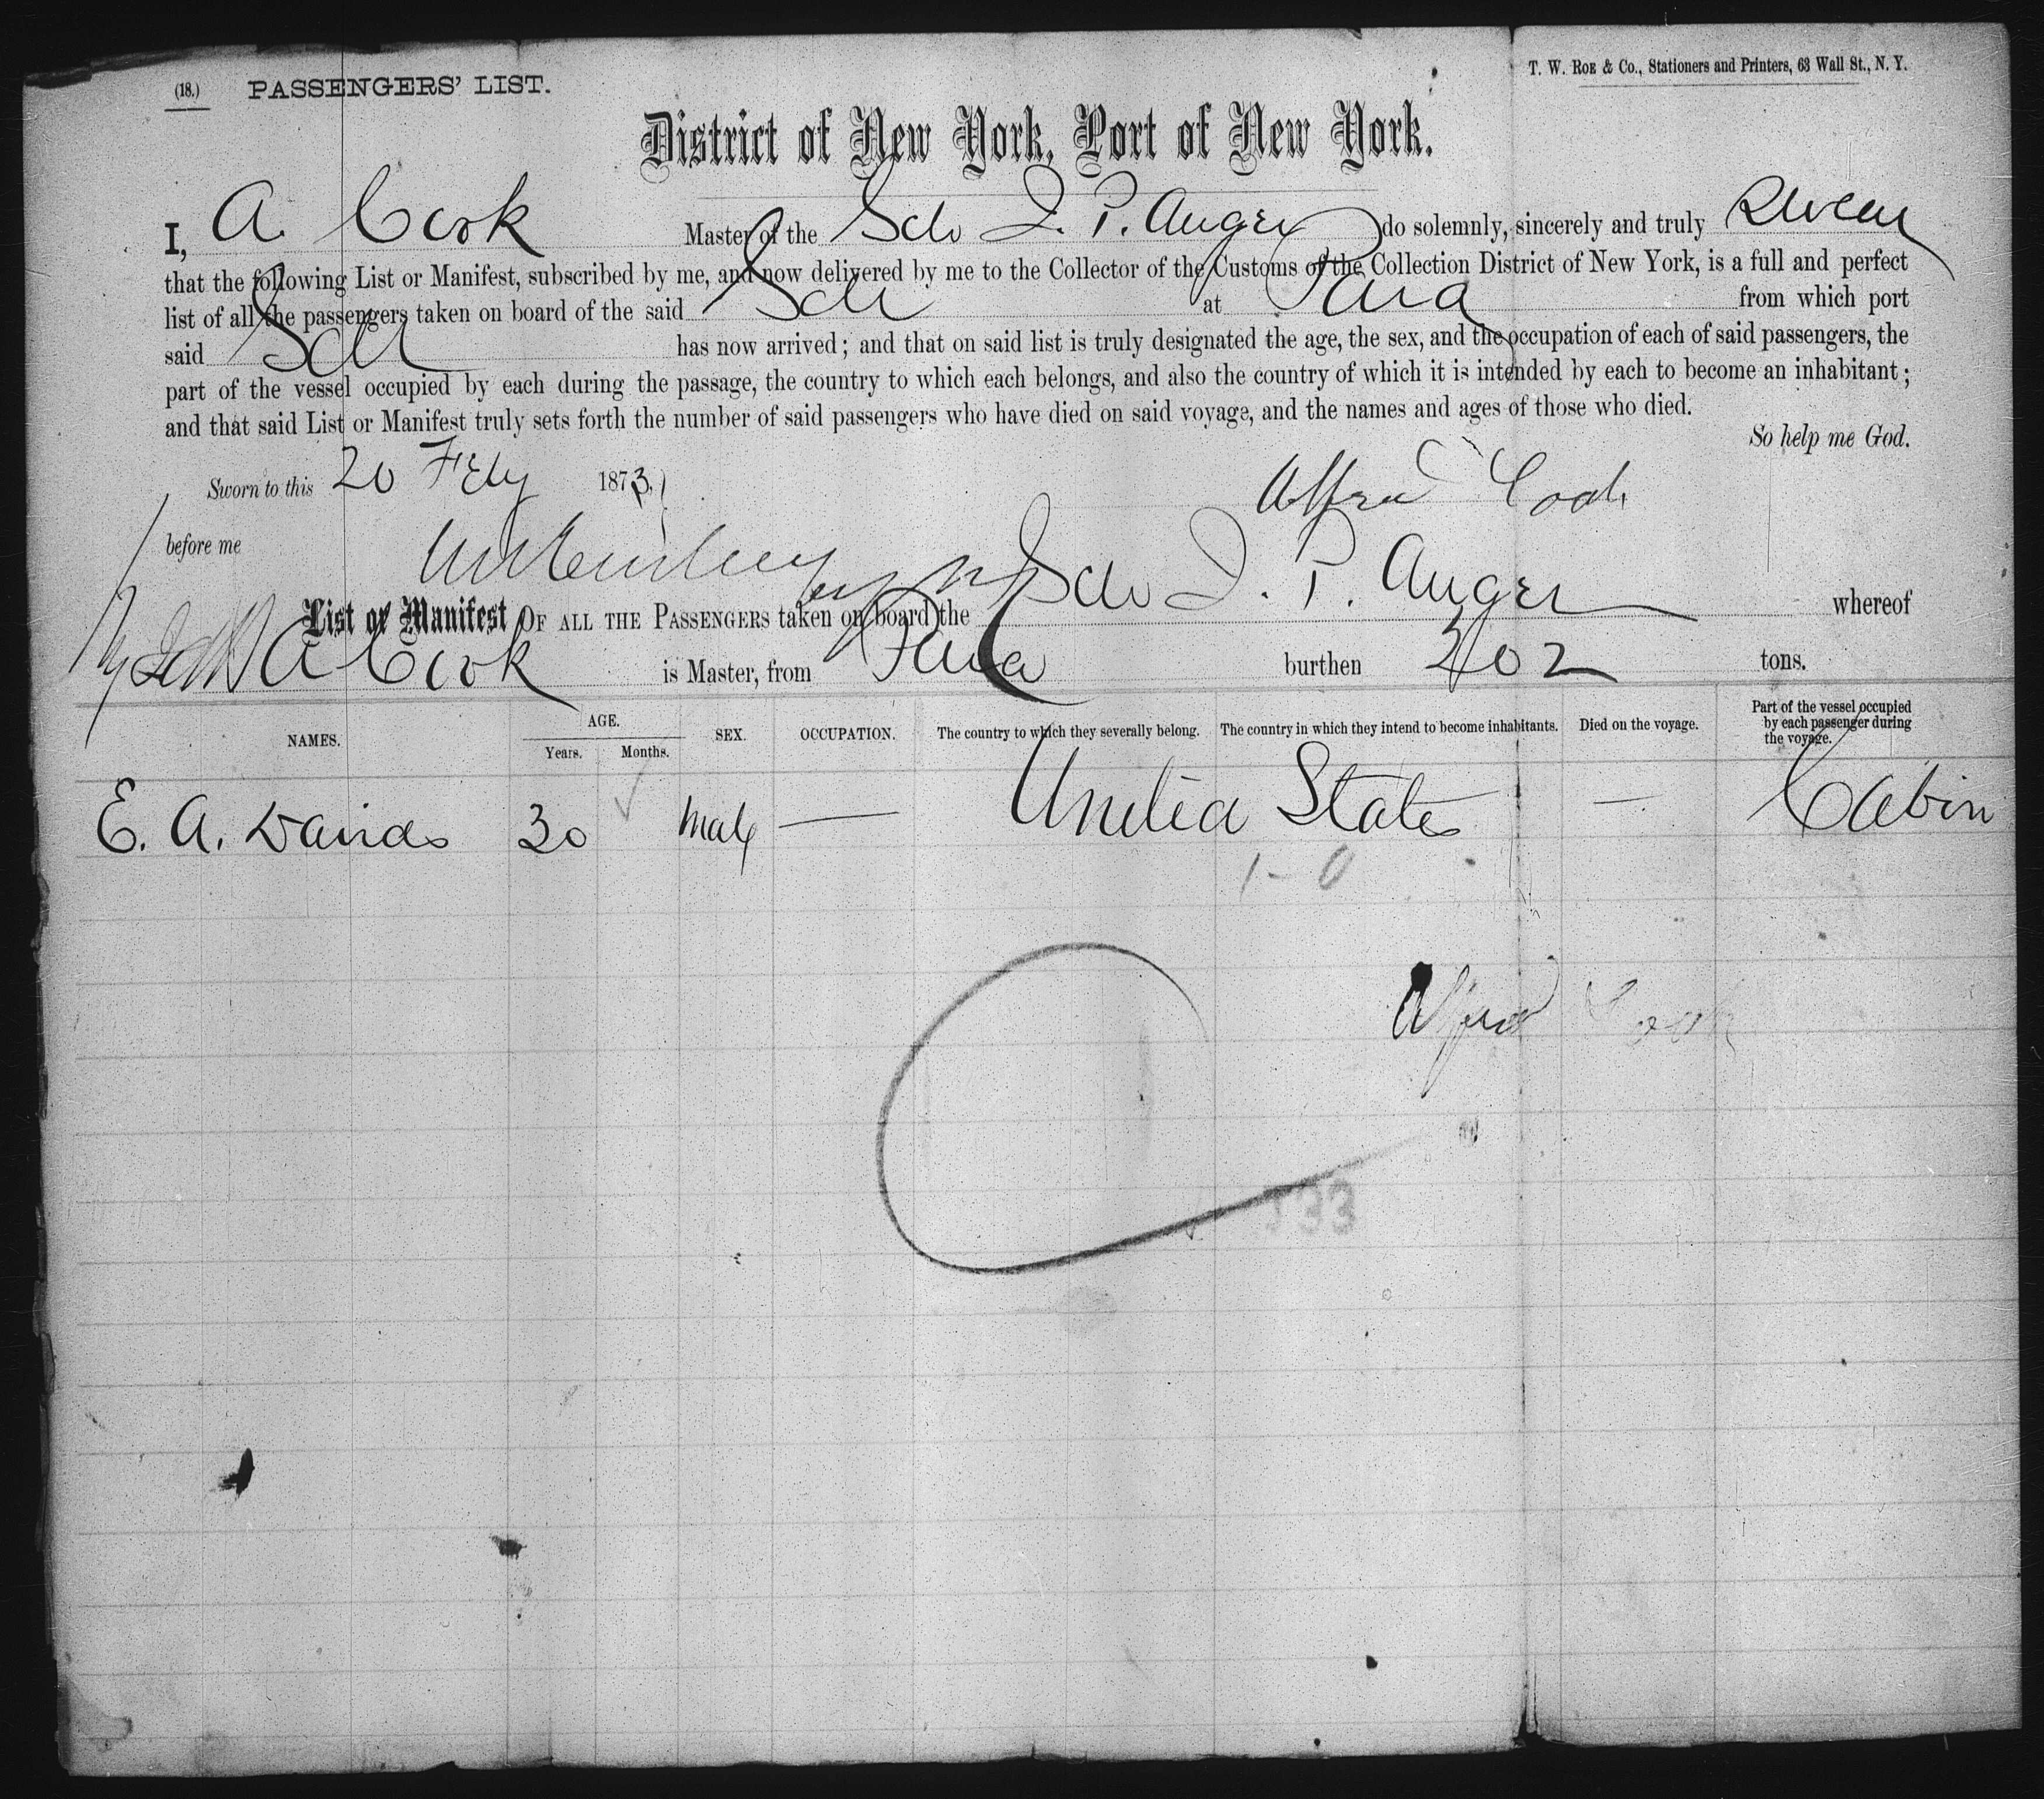 (18.) PASSENGERS' LIST.
T. W. ROE & Co., Stationers and Printers, 63 Wall St., N. Y.
District of New York, Port of New York.
I, A. Cook Master of the Sch J. P. Auger do solemnly, sincerely and truly Swear
that the following List or Manifest, subscribed by me, and now delivered by me to the Collector of the Customs of the Collection District of New York, is a full and perfect
list of all the passengers taken on board of the said Sch at Para from which port
said Sch has now arrived; and that on said list is truly designated the age, the sex, and the occupation of each of said passengers, the
part of the vessel occupied by each during the passage, the country to which each belongs, and also the country of which it is intended by each to become an inhabitant;
and that said List or Manifest truly sets forth the number of said passengers who have died on said voyage, and the names and ages of those who died.
So help me God.
Sworn to this 20 Feby 1873.
Alfred Cook
before me
List or Manifest OF ALL THE PASSENGERS taken on board the Sch J. P. Auger whereof
A Cook is Master, from Para burthen 202 tons.
NAMES. AGE. Years. Months. SEX. OCCUPATION. The country to which they severally belong. The country in which they intend to become inhabitants. Died on the voyage. Part of the vessel occupied by each passenger during the voyage.
E. A. Davids 30 Male — United States — Cabin
1-0
Alfred Cook
133